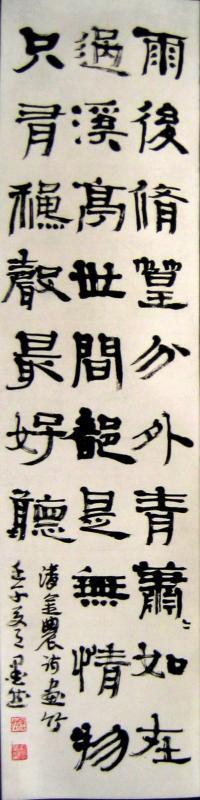 雨後脩篁分外青蕭〻如在
過溪亭世間都是無情物
只有秋聲最好聽
清金農詩畫竹
壬子夏